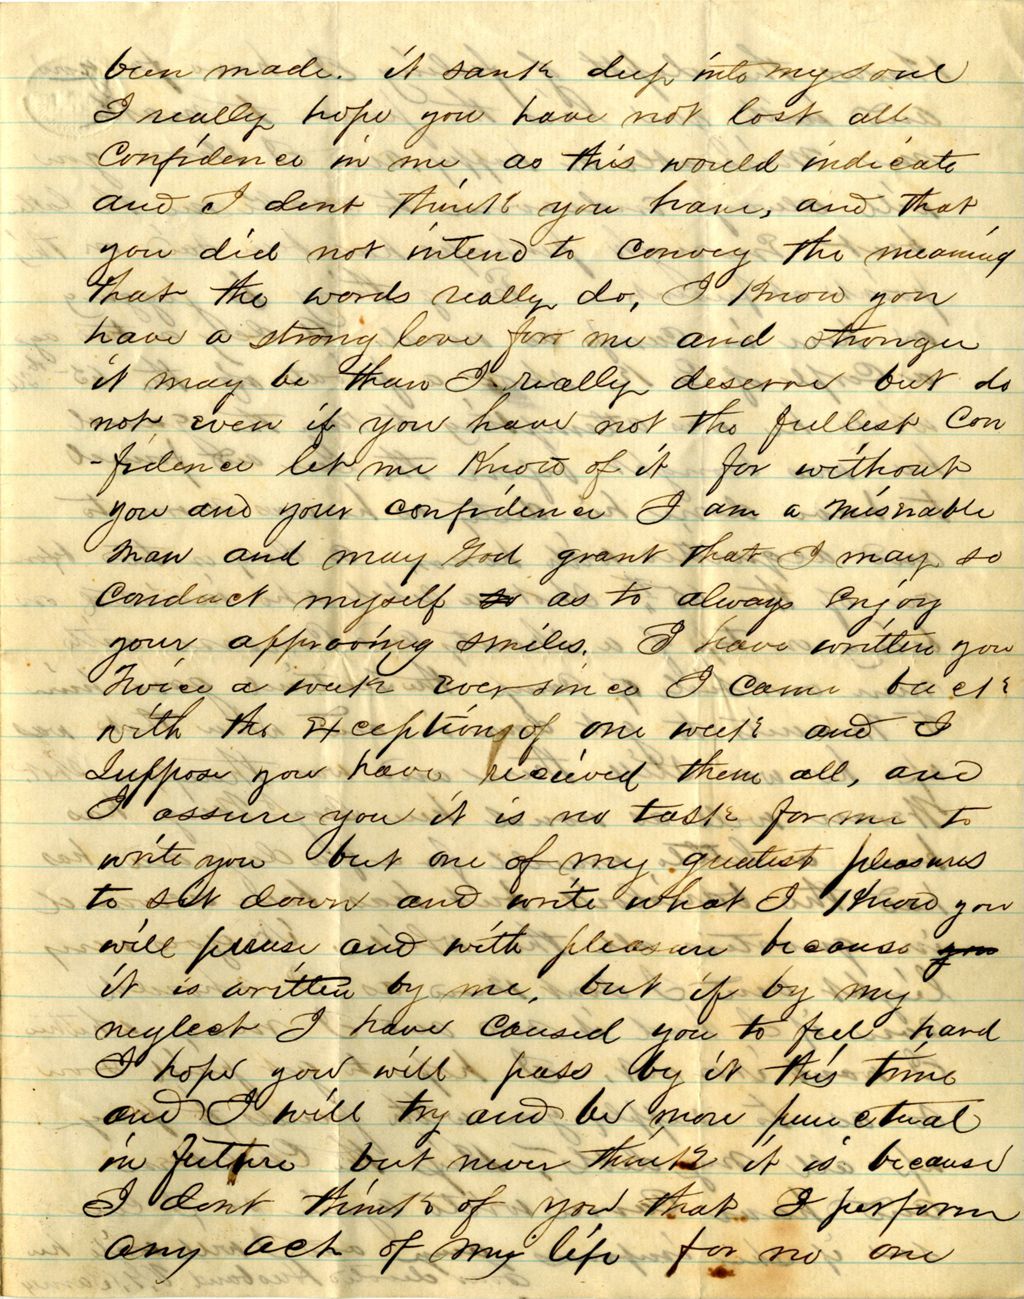 been made. it sank deep into my soul
I really hope you have not lost all
Confidence in me as this would indicate
and I dont think you have, and that
you did not intend to convey the meaning
that the words really do, I know you
have a strong love for me and stronger
it may be than I really deserve but do
not even if you have not the fullest Con
-fidence let me know of it for without
you and your confidence I am a miserable
man and may God grant that I may so
Conduct myself so as to always enjoy
your approving smiles. I have written you
Twice a week ever since I came back
with the Exception of one week and I
Suppose you have recieved them all, and
I assure you it is no task for me to
write you but one of my greatest pleasures
to sit down and write what I know you
will peruse and with pleasure because you
it is written by me, but if by my
neglect I have Caused you to feel hard
I hope you will pass by it this time
and I will try and be more punctual
in future but never think it is because
I dont think of you that I perform
any act of my life for no one